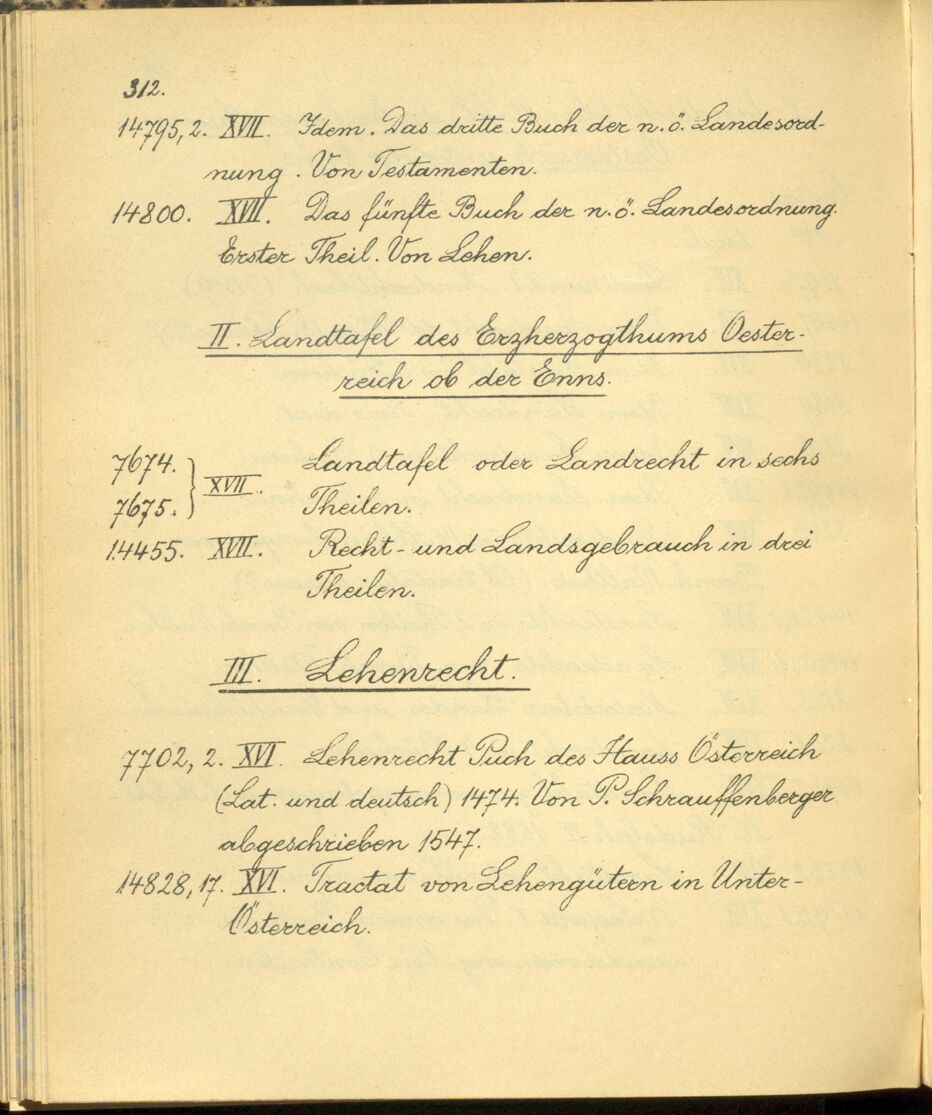 312.
14795,2. XVII. Idem. Das dritte Buch der n. ö. Landesord-
nung. Von Testamenten.
14800. XVII. Das fünfte Buch der n. ö. Landesordnung.
Erster Theil. Von Lehen.
II. Landtafel des Erzherzogthums Oester-
reich ob der Enns.
7674. Landtafel oder Landrecht in sechs
} XVII.
7675. Theilen.
14455. XVII. Recht- und Landsgebrauch in drei
Theilen.
III. Lehenrecht.
7702, 2. XVI. Lehenrecht Puch des Hauss Österreich
(Lat. und deutsch) 1474. Von P. Schrauffenberger
abgeschrieben 1547.
14828, 17. XVI. Tractat von Lehengütern in Unter-
Österreich.